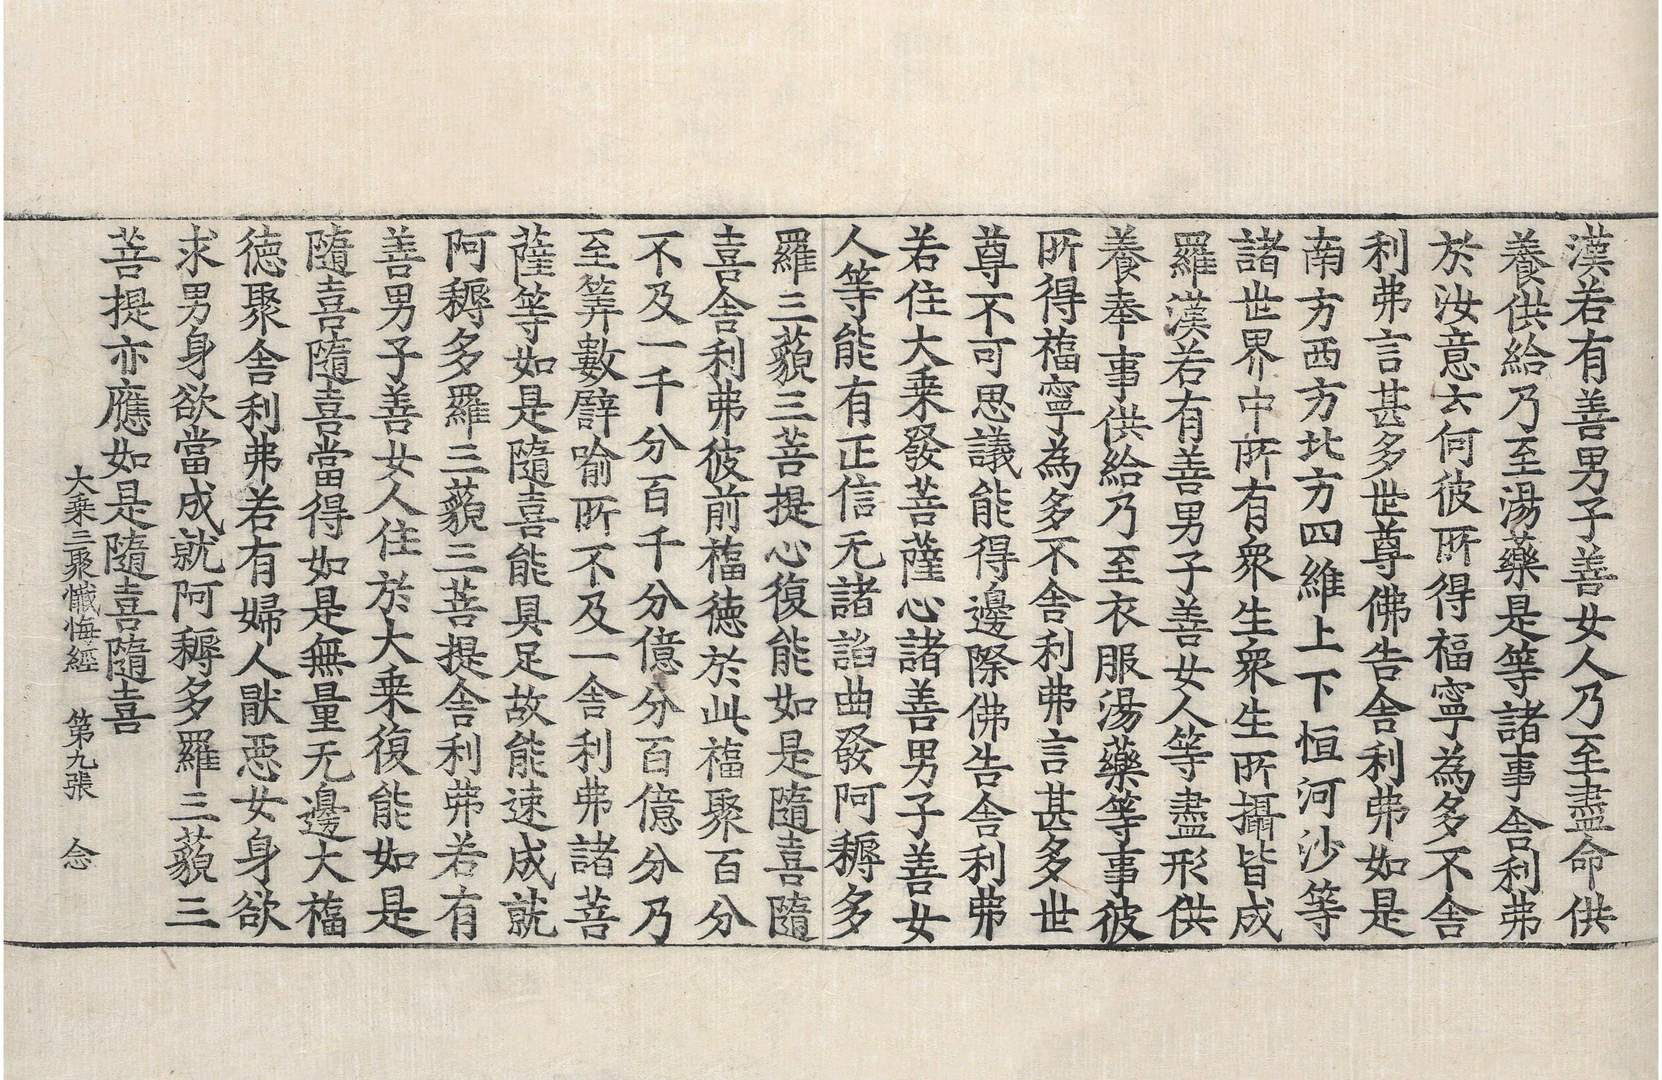 漢若有善男子善女人乃至盡命供
養供給乃至湯藥是等諸事舍利弗
於汝意云何彼所得福寧為多不舍
利弗言甚多世尊佛告舍利弗如是
南方西方北方四維上下恒河沙等
諸世界中所有衆生衆生所攝皆成
羅漢若有善男子善女人等盡形供
養奉事供給乃至衣服湯藥等事彼
所得福寧為多不舍利弗言甚多世
尊不可思議能得邊際佛告舍利弗
若住大乗發菩薩心諸善男子善女
人等能有正信无諸諂曲發阿耨多
羅三藐三菩提心復能如是隨喜隨
喜舍利弗彼前福徳於此福聚百分
不及一千分百千分億分百億分乃
至筭數譬喻所不及一舍利弗諸菩
薩等如是隨喜能具足故能速成就
阿耨多羅三藐三菩提舍利弗若有
善男子善女人住於大乗復能如是
隨喜隨喜當得如是無量无邊大福
徳聚舍利弗若有婦人猒惡女身欲
求男身欲當成就阿耨多羅三藐三
菩提亦應如是隨喜隨喜
大乗三聚懺悔經 第九張 念